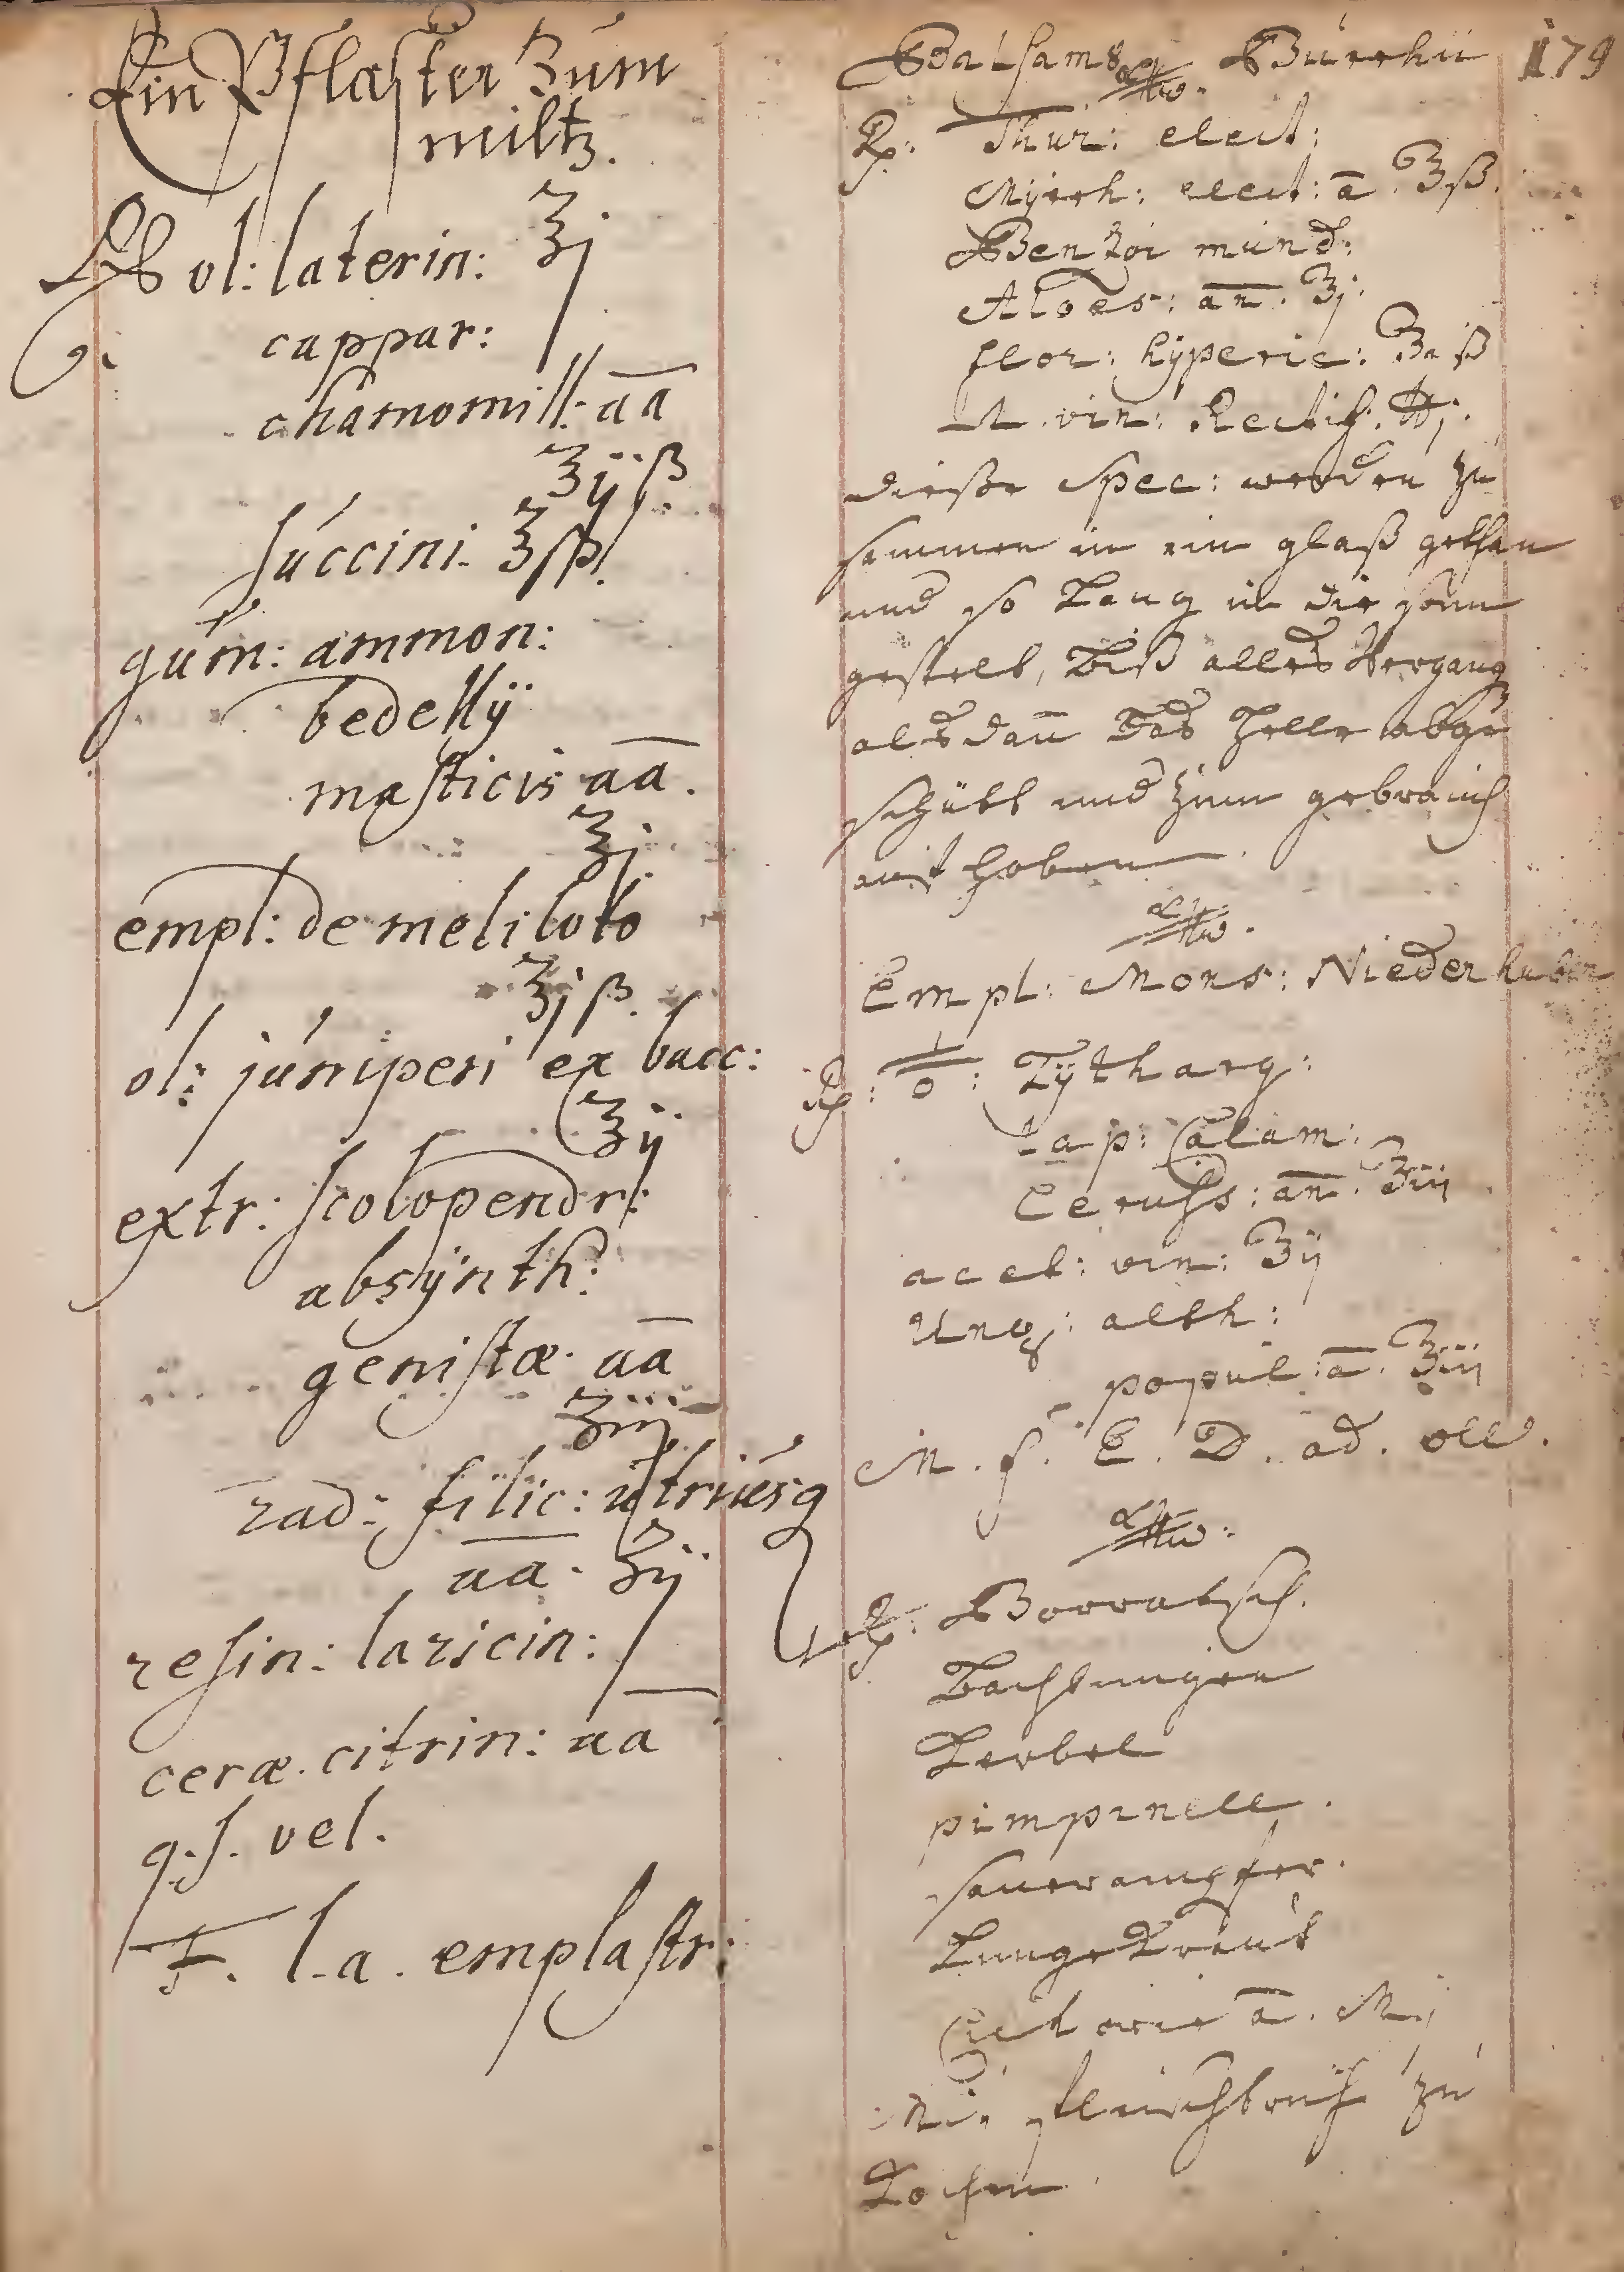 Ein Pflaster Zum
miltz.
℞ ol: laterin: ℥j
cappar:
chamomill: aa
ʒijß.
succini. ʒſß.
gum: ammon:
bedellÿ
masticis aa.
ʒj.
empl: de meliloto
ʒjß.
ol: juniperi ex bacc:
ʒij
extr: scolopendr:
absÿnth:
genistæ. aa
ʒiij
rad: filic: utriusq
aa. ʒij
resin: laricin:
ceræ. citrin: aa
q.s. vel.
F. l.a. emplastr:
179
Balsam Bürrhii
℞: Thur: elect:
Mÿrrh: elect: a. ʒß.
Benzoi mund:
Aloes: an. ʒj.
flor: hÿperic: ß
vin: Rectif: ℔j.
dieße Spec: werden zu
sammen in ein glaß gethan
und so Lang in die sonn
gestelt, Biß alles Vergang
alsdañ das helle abge
schütt und zum gebrauch
auf haben
Empl: Mons: Niederhuber
℞: Lÿtharg:
Lap: Calam:
Ceruss: an. ʒiij
acet: vin: ʒij
Ung: alth:
popul: a. ʒiij
M. f. E. D. ad. oll.
℞: Borratsch.
Bachbungen
Kerbel
pimpinell.
sauerampfer.
LungeKraut
a. Mj
fleischbrüh zu
Kochen.